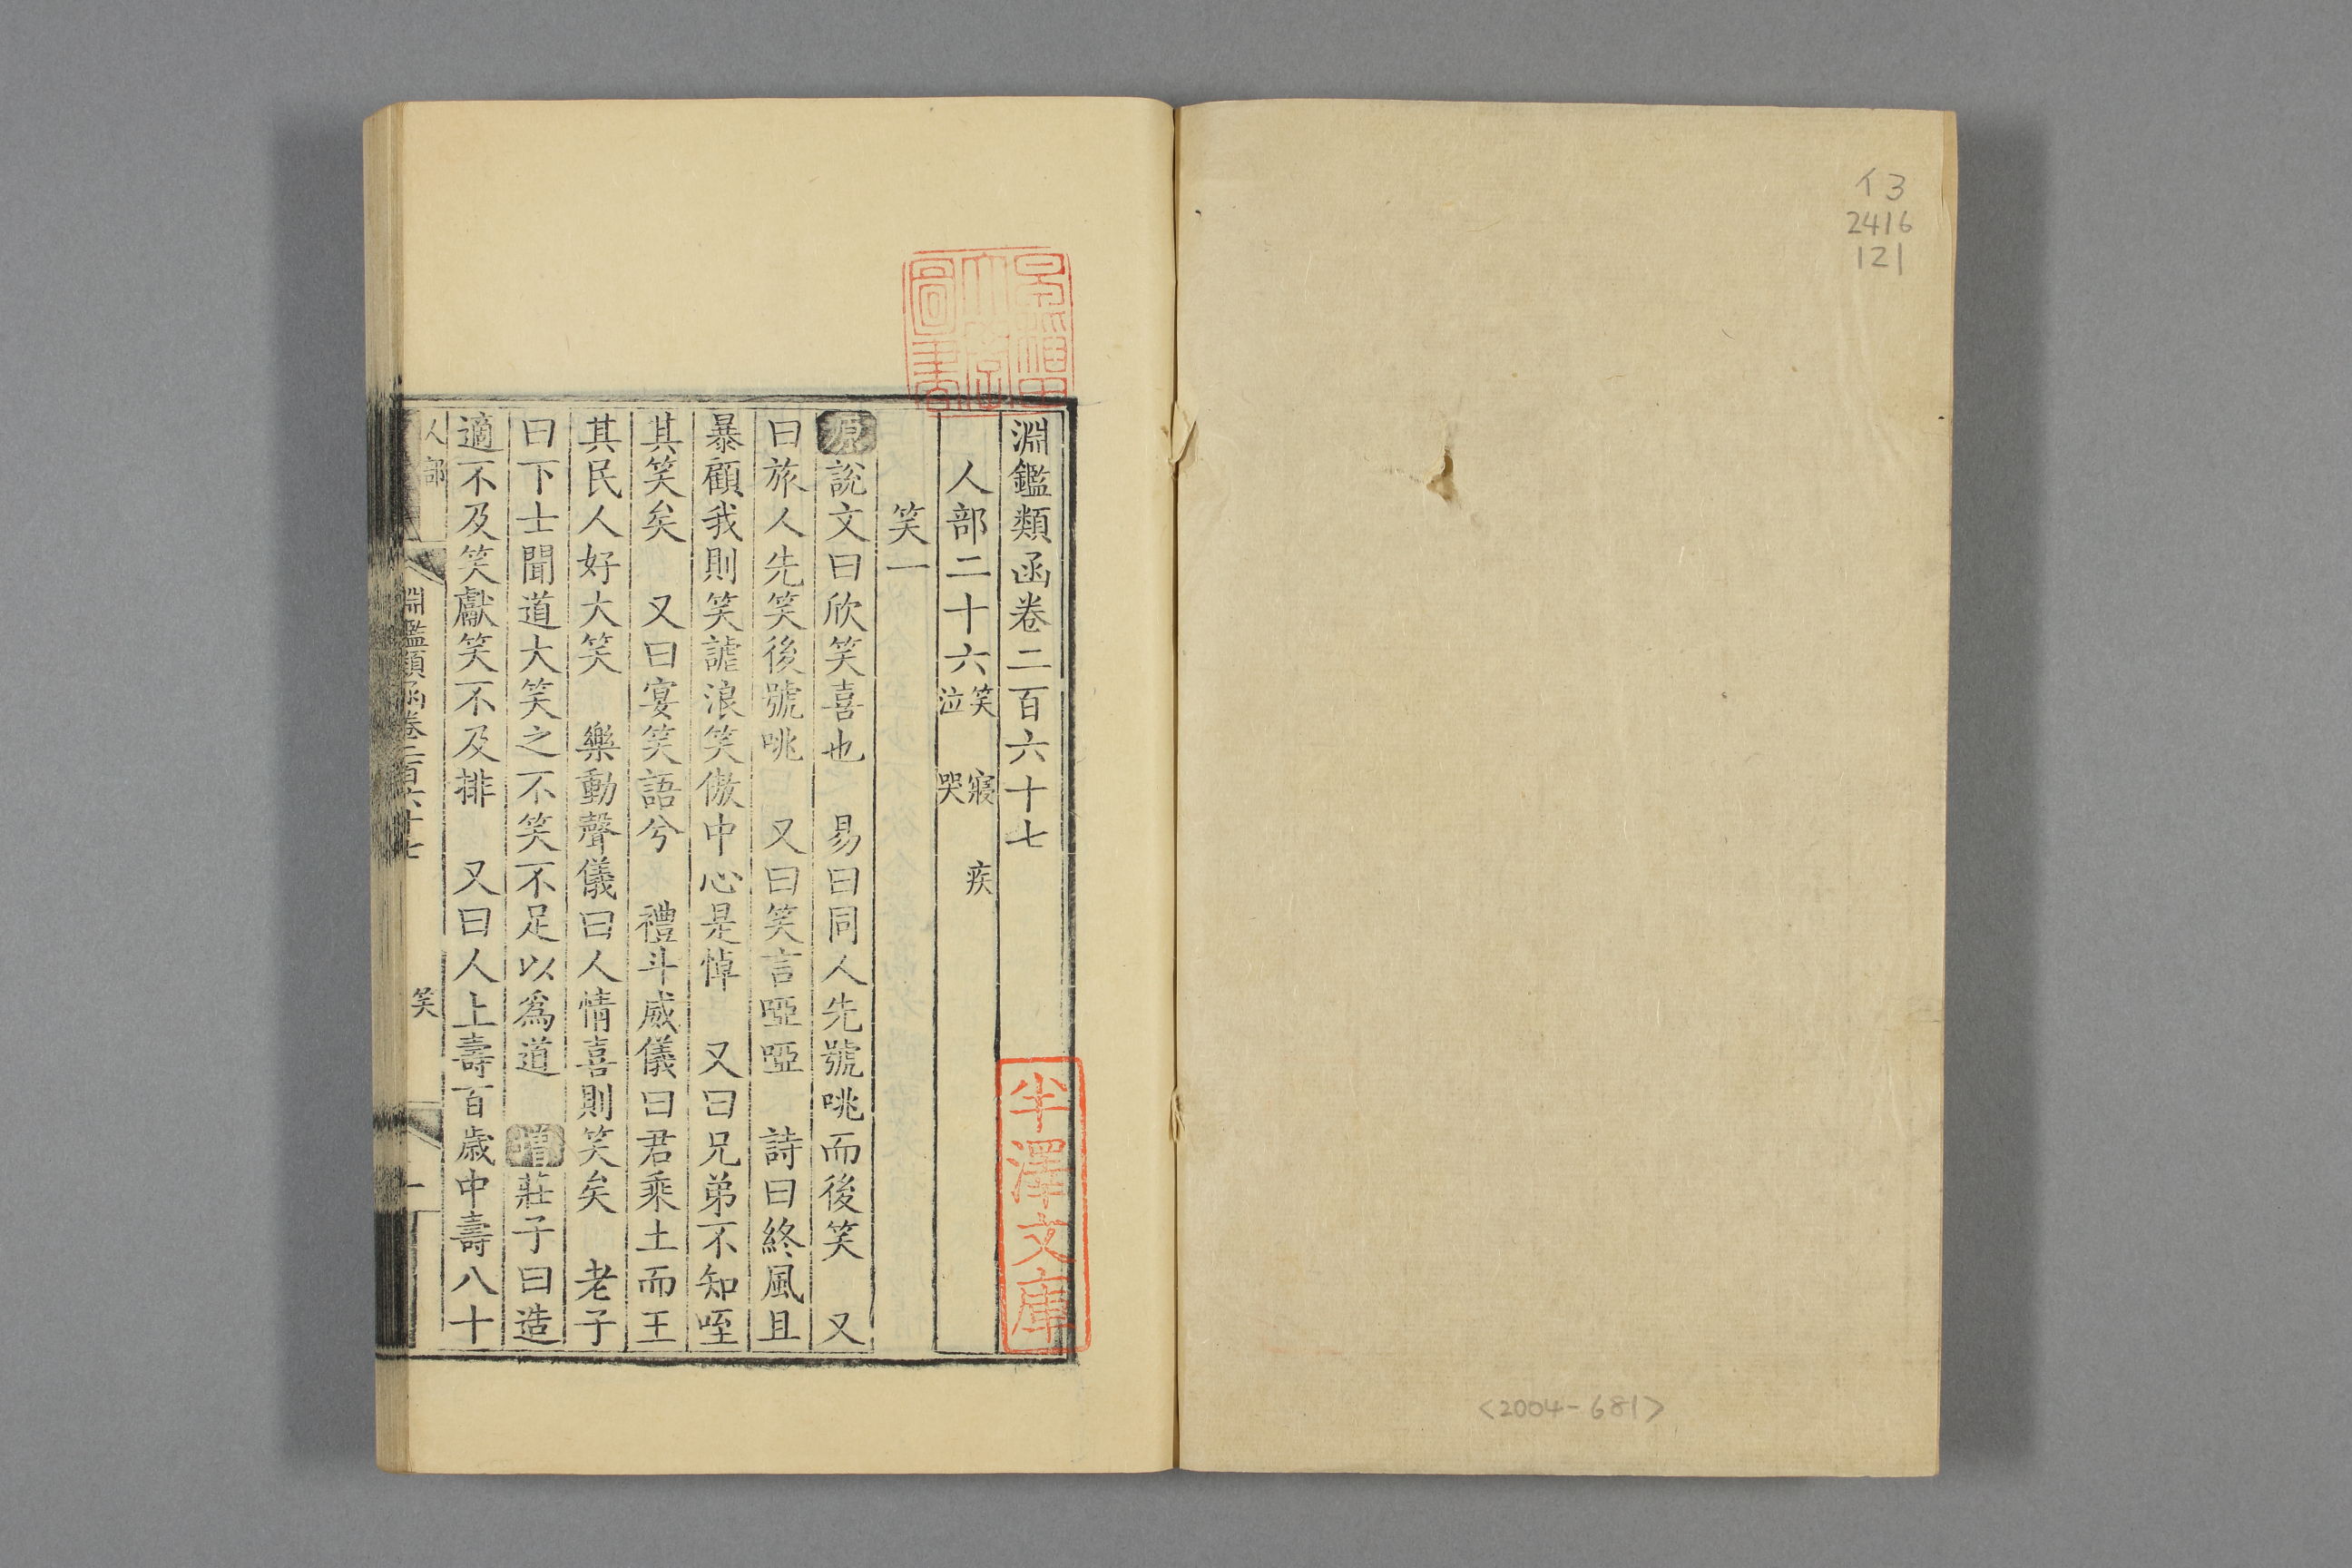 イ3
2416
121
<2004-681>
淵鑑類函卷二百六十七
人部二十六 笑 寢 疾
泣 哭
笑一
原說文曰欣笑喜也 易曰同人先號咷而後笑 又
曰旅人先笑後號咷 又曰笑言啞啞 詩曰終風且
暴顧我則笑謔浪笑傲中心是悼 又曰兄弟不知咥
其笑矣 又曰宴笑語兮 禮斗威儀曰君乘土而王
其民人好大笑 樂動聲儀曰人情喜則笑矣 老子
曰下士聞道大笑之不笑不足以爲道 增莊子曰造
適不及笑獻笑不及排 又曰人上壽百歲中壽八十
人部
淵鑑類函卷二百六十七
笑
一
半澤文庫